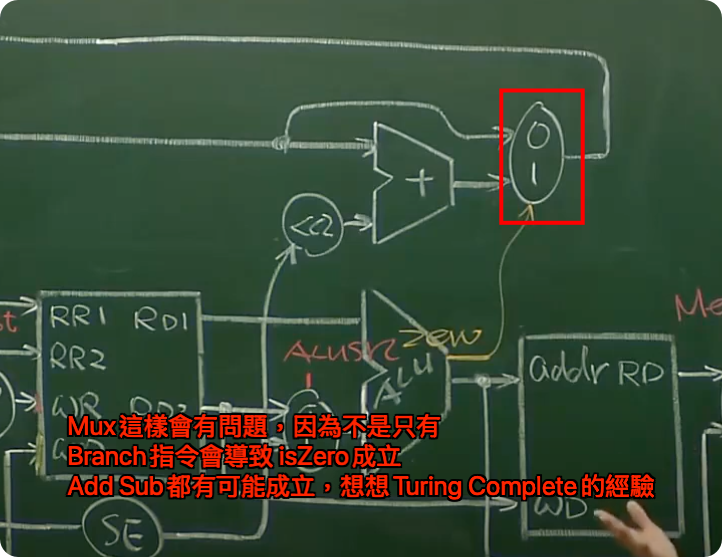 0
1
+
<<2
RR1 RD1
st
RR2
WR RD2
ALUSrc
ALU
zero
Me
addr RD
WD
SE
Mux這樣會有問題，因為不是只有
Branch指令會導致 isZero成立
Add Sub都有可能成立，想想 Turing Complete的經驗